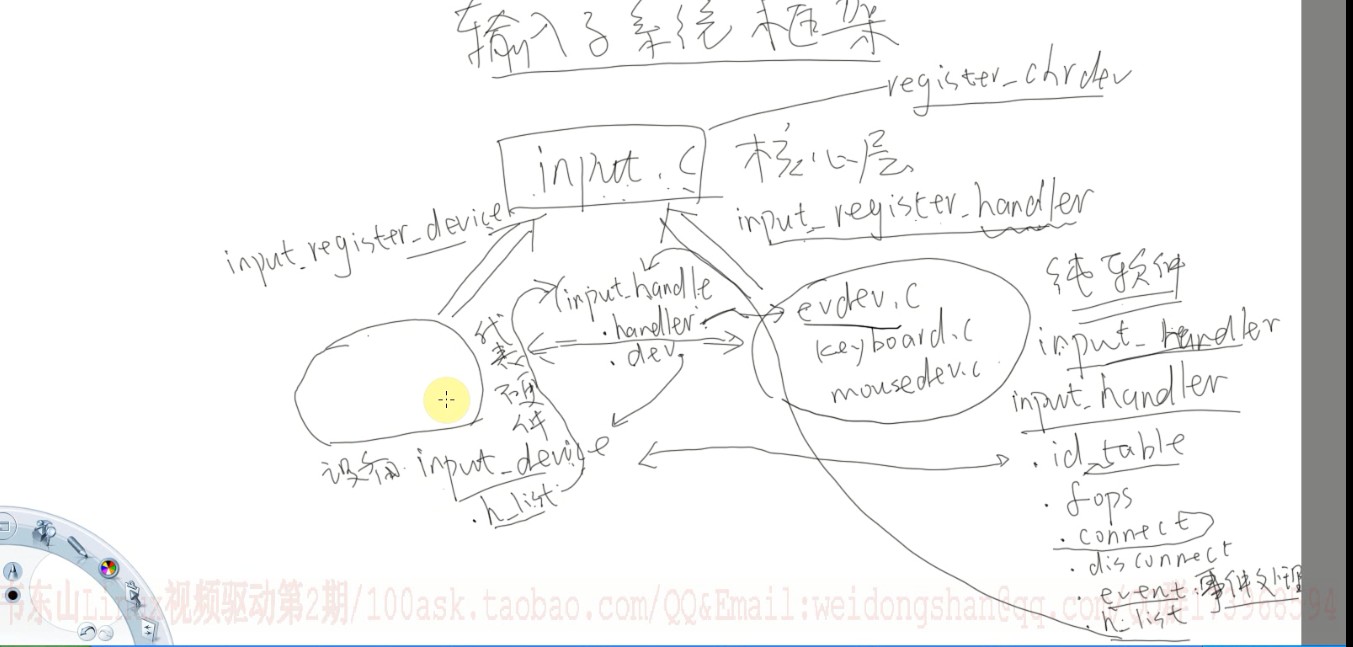 输入子系统框架
register_chrdev
input.c 核心层
input_register_device
input_register_handler
input_handle
.handler
.dev
代表硬件
evdev.c
keyboard.c
mousedev.c
纯软件
input_handler
input_handler
.id_table
.fops
.connect
.disconnect
.event:事件处理
.h_list
设备 input_device
.h_list
韦东山Linux视频驱动第2期/100ask.taobao.com/QQ&Email:weidongshan@qq.com